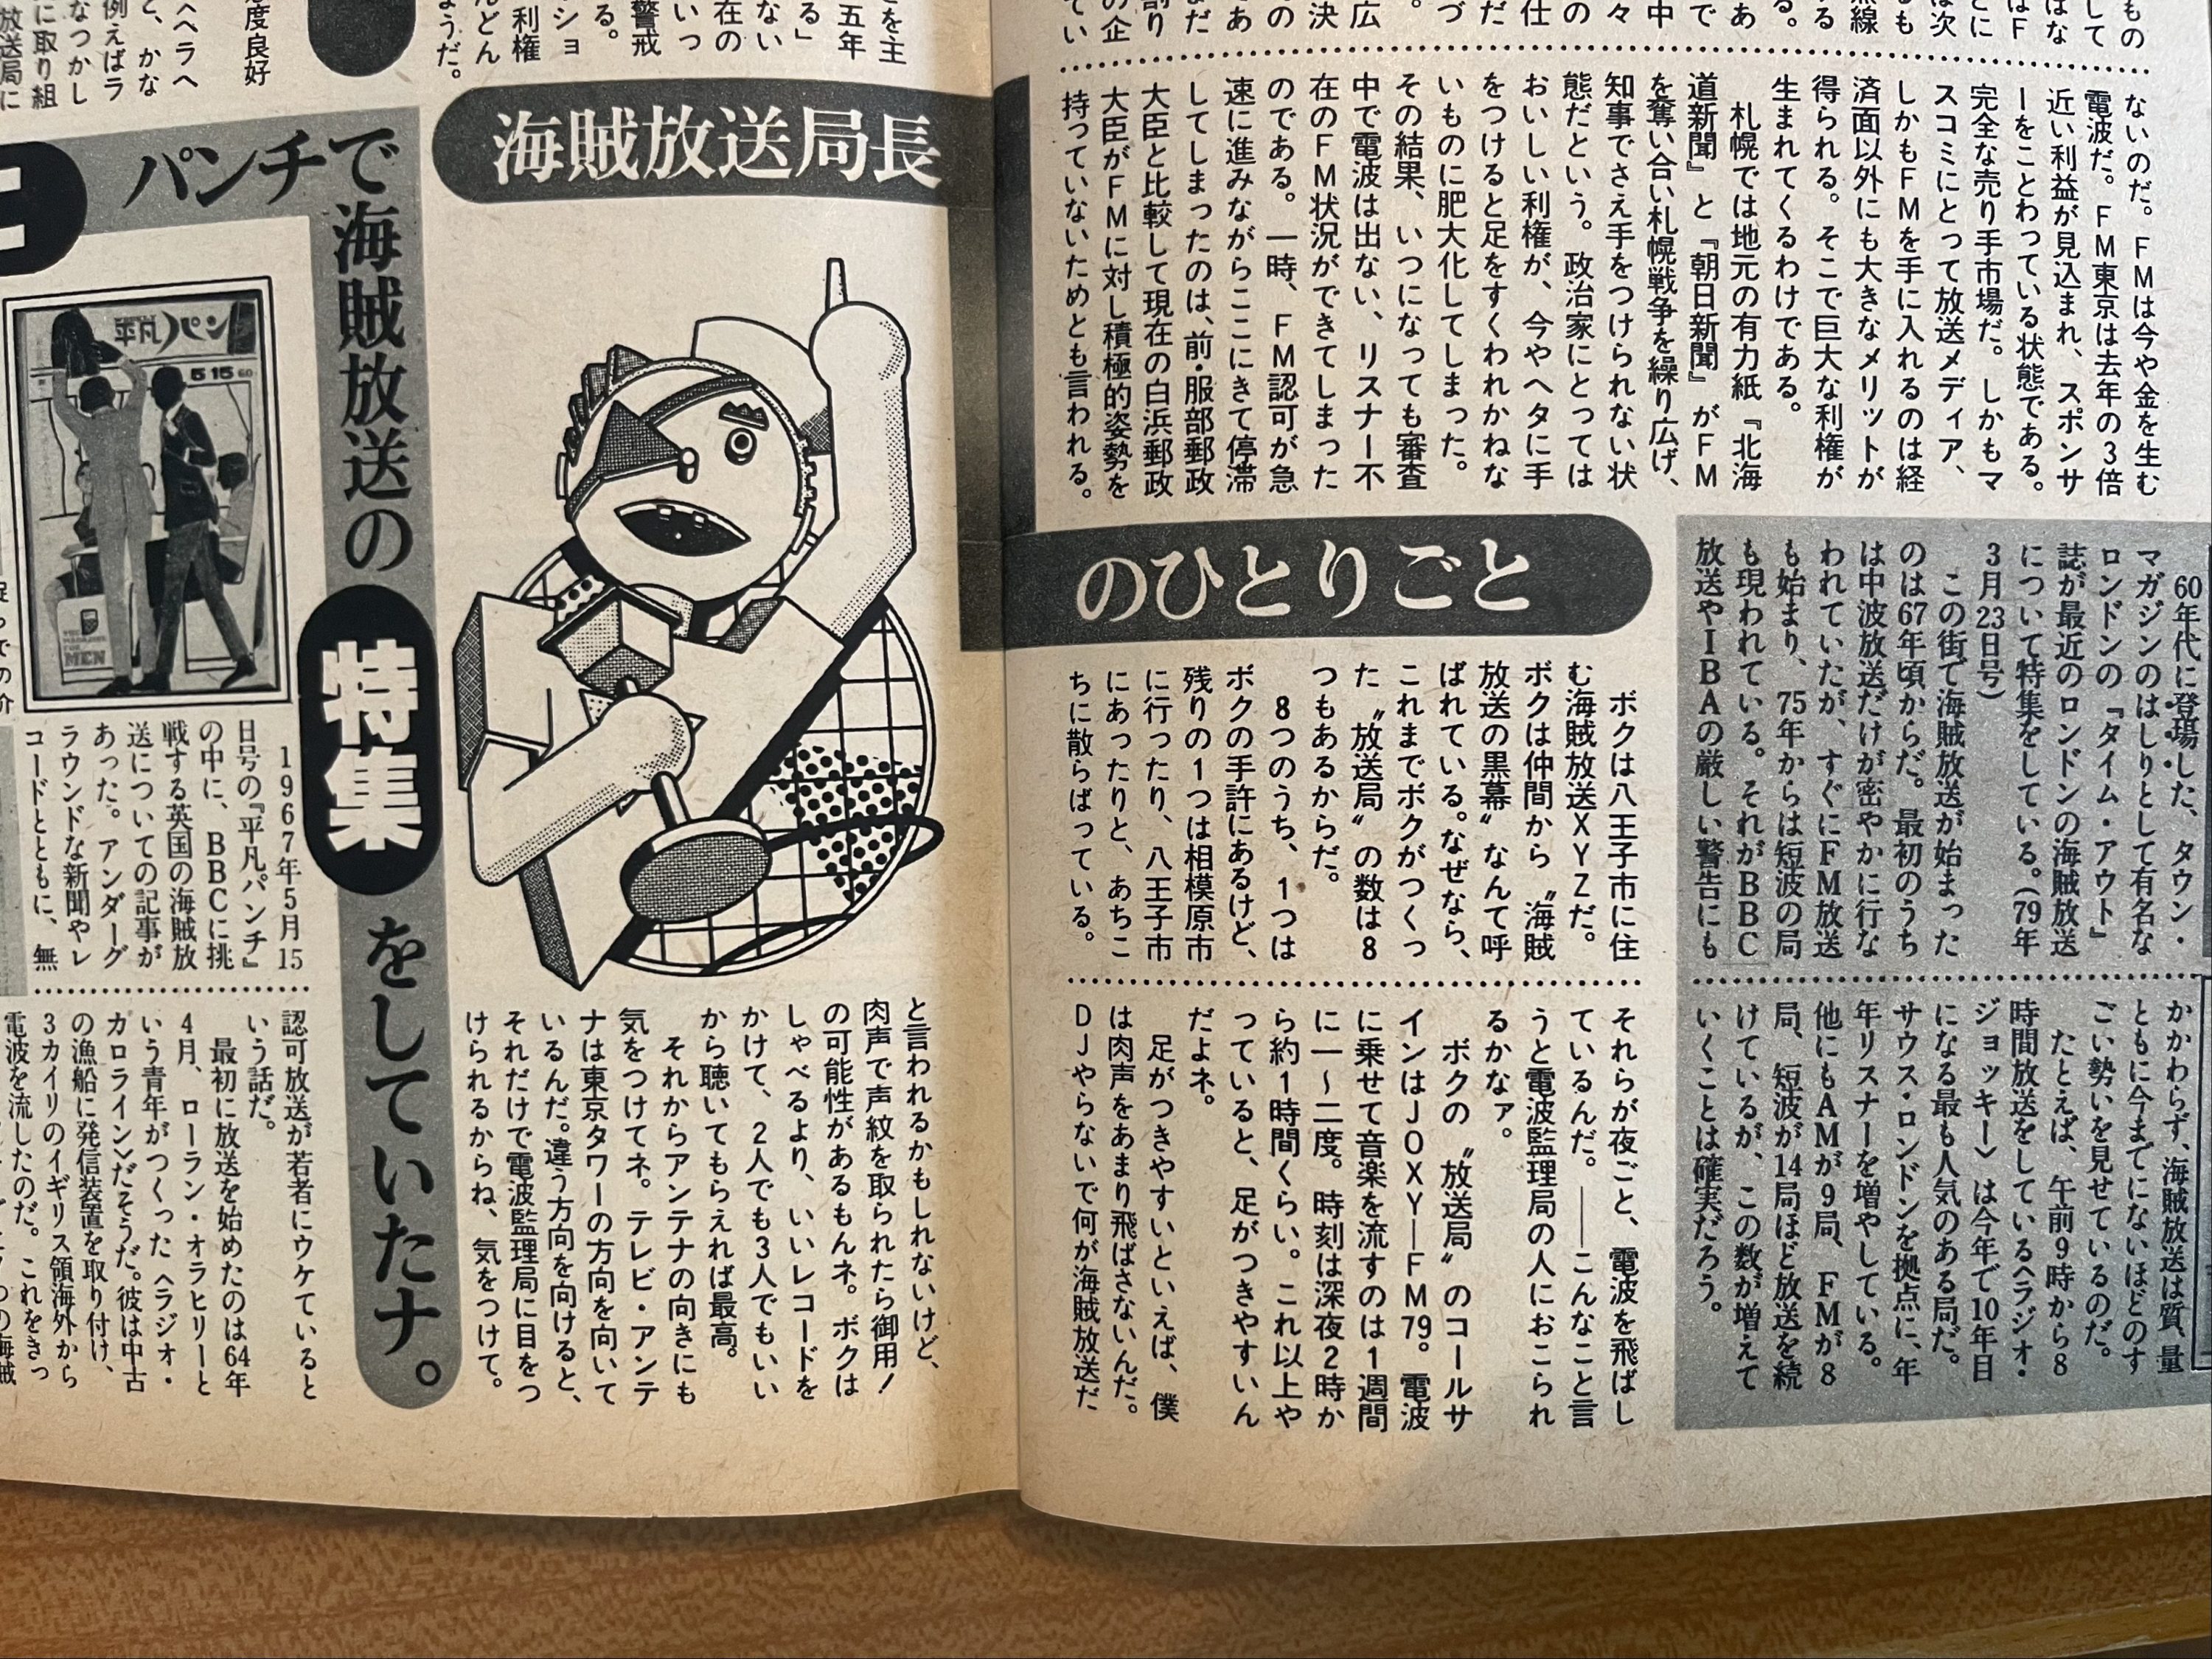 ないのだ。FMは今や金を生む
電波だ。FM東京は去年の3倍
近い利益が見込まれ、スポンサ
ーをことわっている状態である。
完全な売り手市場だ。しかもマ
スコミにとって放送メディア、
しかもFMを手に入れるのは経
済面以外にも大きなメリットが
得られる。そこで巨大な利権が
生まれてくるわけである。
札幌では地元の有力紙『北海
道新聞』と『朝日新聞』がFM
を奪い合い札幌戦争を繰り広げ、
知事でさえ手をつけられない状
態だという。政治家にとっては
おいしい利権が、今やヘタに手
をつけると足をすくわれかねな
いものに肥大化してしまった。
その結果、いつになっても審査
中で電波は出ない、リスナー不
在のFM状況ができてしまった
のである。一時、FM認可が急
速に進みながらここにきて停滞
してしまったのは、前・服部郵政
大臣と比較して現在の白浜郵政
大臣がFMに対し積極的姿勢を
持っていないためとも言われる。
60年代に登場した、タウン・
マガジンのはしりとして有名な
ロンドンの『タイム・アウト』
誌が最近のロンドンの海賊放送
について特集をしている。(79年
3月23日号)
この街で海賊放送が始まった
のは67年頃からだ。最初のうち
は中波放送だけが密やかに行な
われていたが、すぐにFM放送
も始まり、75年からは短波の局
も現われている。それがBBC
放送やIBAの厳しい警告にも
かかわらず、海賊放送は質、量
ともに今までにないほどのす
ごい勢いを見せているのだ。
たとえば、午前9時から8
時間放送をしている〈ラジオ・
ジョッキー〉は今年で10年目
になる最も人気のある局だ。
サウス・ロンドンを拠点に、年
年リスナーを増やしている。
他にもAMが9局、FMが8
局、短波が14局ほど放送を続
けているが、この数が増えて
いくことは確実だろう。
海賊放送局長
のひとりごと
ボクは八王子市に住
む海賊放送XYZだ。
ボクは仲間から〝海賊
放送の黒幕〟なんて呼
ばれている。なぜなら、
これまでボクがつくっ
た〝放送局〟の数は8
つもあるからだ。
8つのうち、1つは
ボクの手許にあるけど、
残りの1つは相模原市
に行ったり、八王子市
にあったりと、あちこ
ちに散らばっている。
それらが夜ごと、電波を飛ばし
ているんだ。——こんなこと言
うと電波監理局の人におこられ
るかなァ。
ボクの〝放送局〟のコールサ
インはJOXY—FM79。電波
に乗せて音楽を流すのは1週間
に一〜二度。時刻は深夜2時か
ら約1時間くらい。これ以上や
っていると、足がつきやすいん
だよネ。
足がつきやすいといえば、僕
は肉声をあまり飛ばさないんだ。
DJやらないで何が海賊放送だ
と言われるかもしれないけど、
肉声で声紋を取られたら御用!
の可能性があるもんネ。ボクは
しゃべるより、いいレコードを
かけて、2人でも3人でもいい
から聴いてもらえれば最高。
それからアンテナの向きにも
気をつけてネ。テレビ・アンテ
ナは東京タワーの方向を向いて
いるんだ。違う方向を向けると、
それだけで電波監理局に目をつ
けられるからね、気をつけて。
パンチで海賊放送の特集をしていたナ。
平凡パンチ
5 15 60
FOR MEN
1967年5月15
日号の『平凡パンチ』
の中に、BBCに挑
戦する英国の海賊放
送についての記事が
あった。アンダーグ
ラウンドな新聞やレ
コードとともに、無
認可放送が若者にウケていると
いう話だ。
最初に放送を始めたのは64年
4月、ローラン・オラヒリーと
いう青年がつくった〈ラジオ・
カロライン〉だそうだ。彼は中古
の漁船に発信装置を取り付け、
3カイリのイギリス領海外から
電波を流したのだ。これをきっ